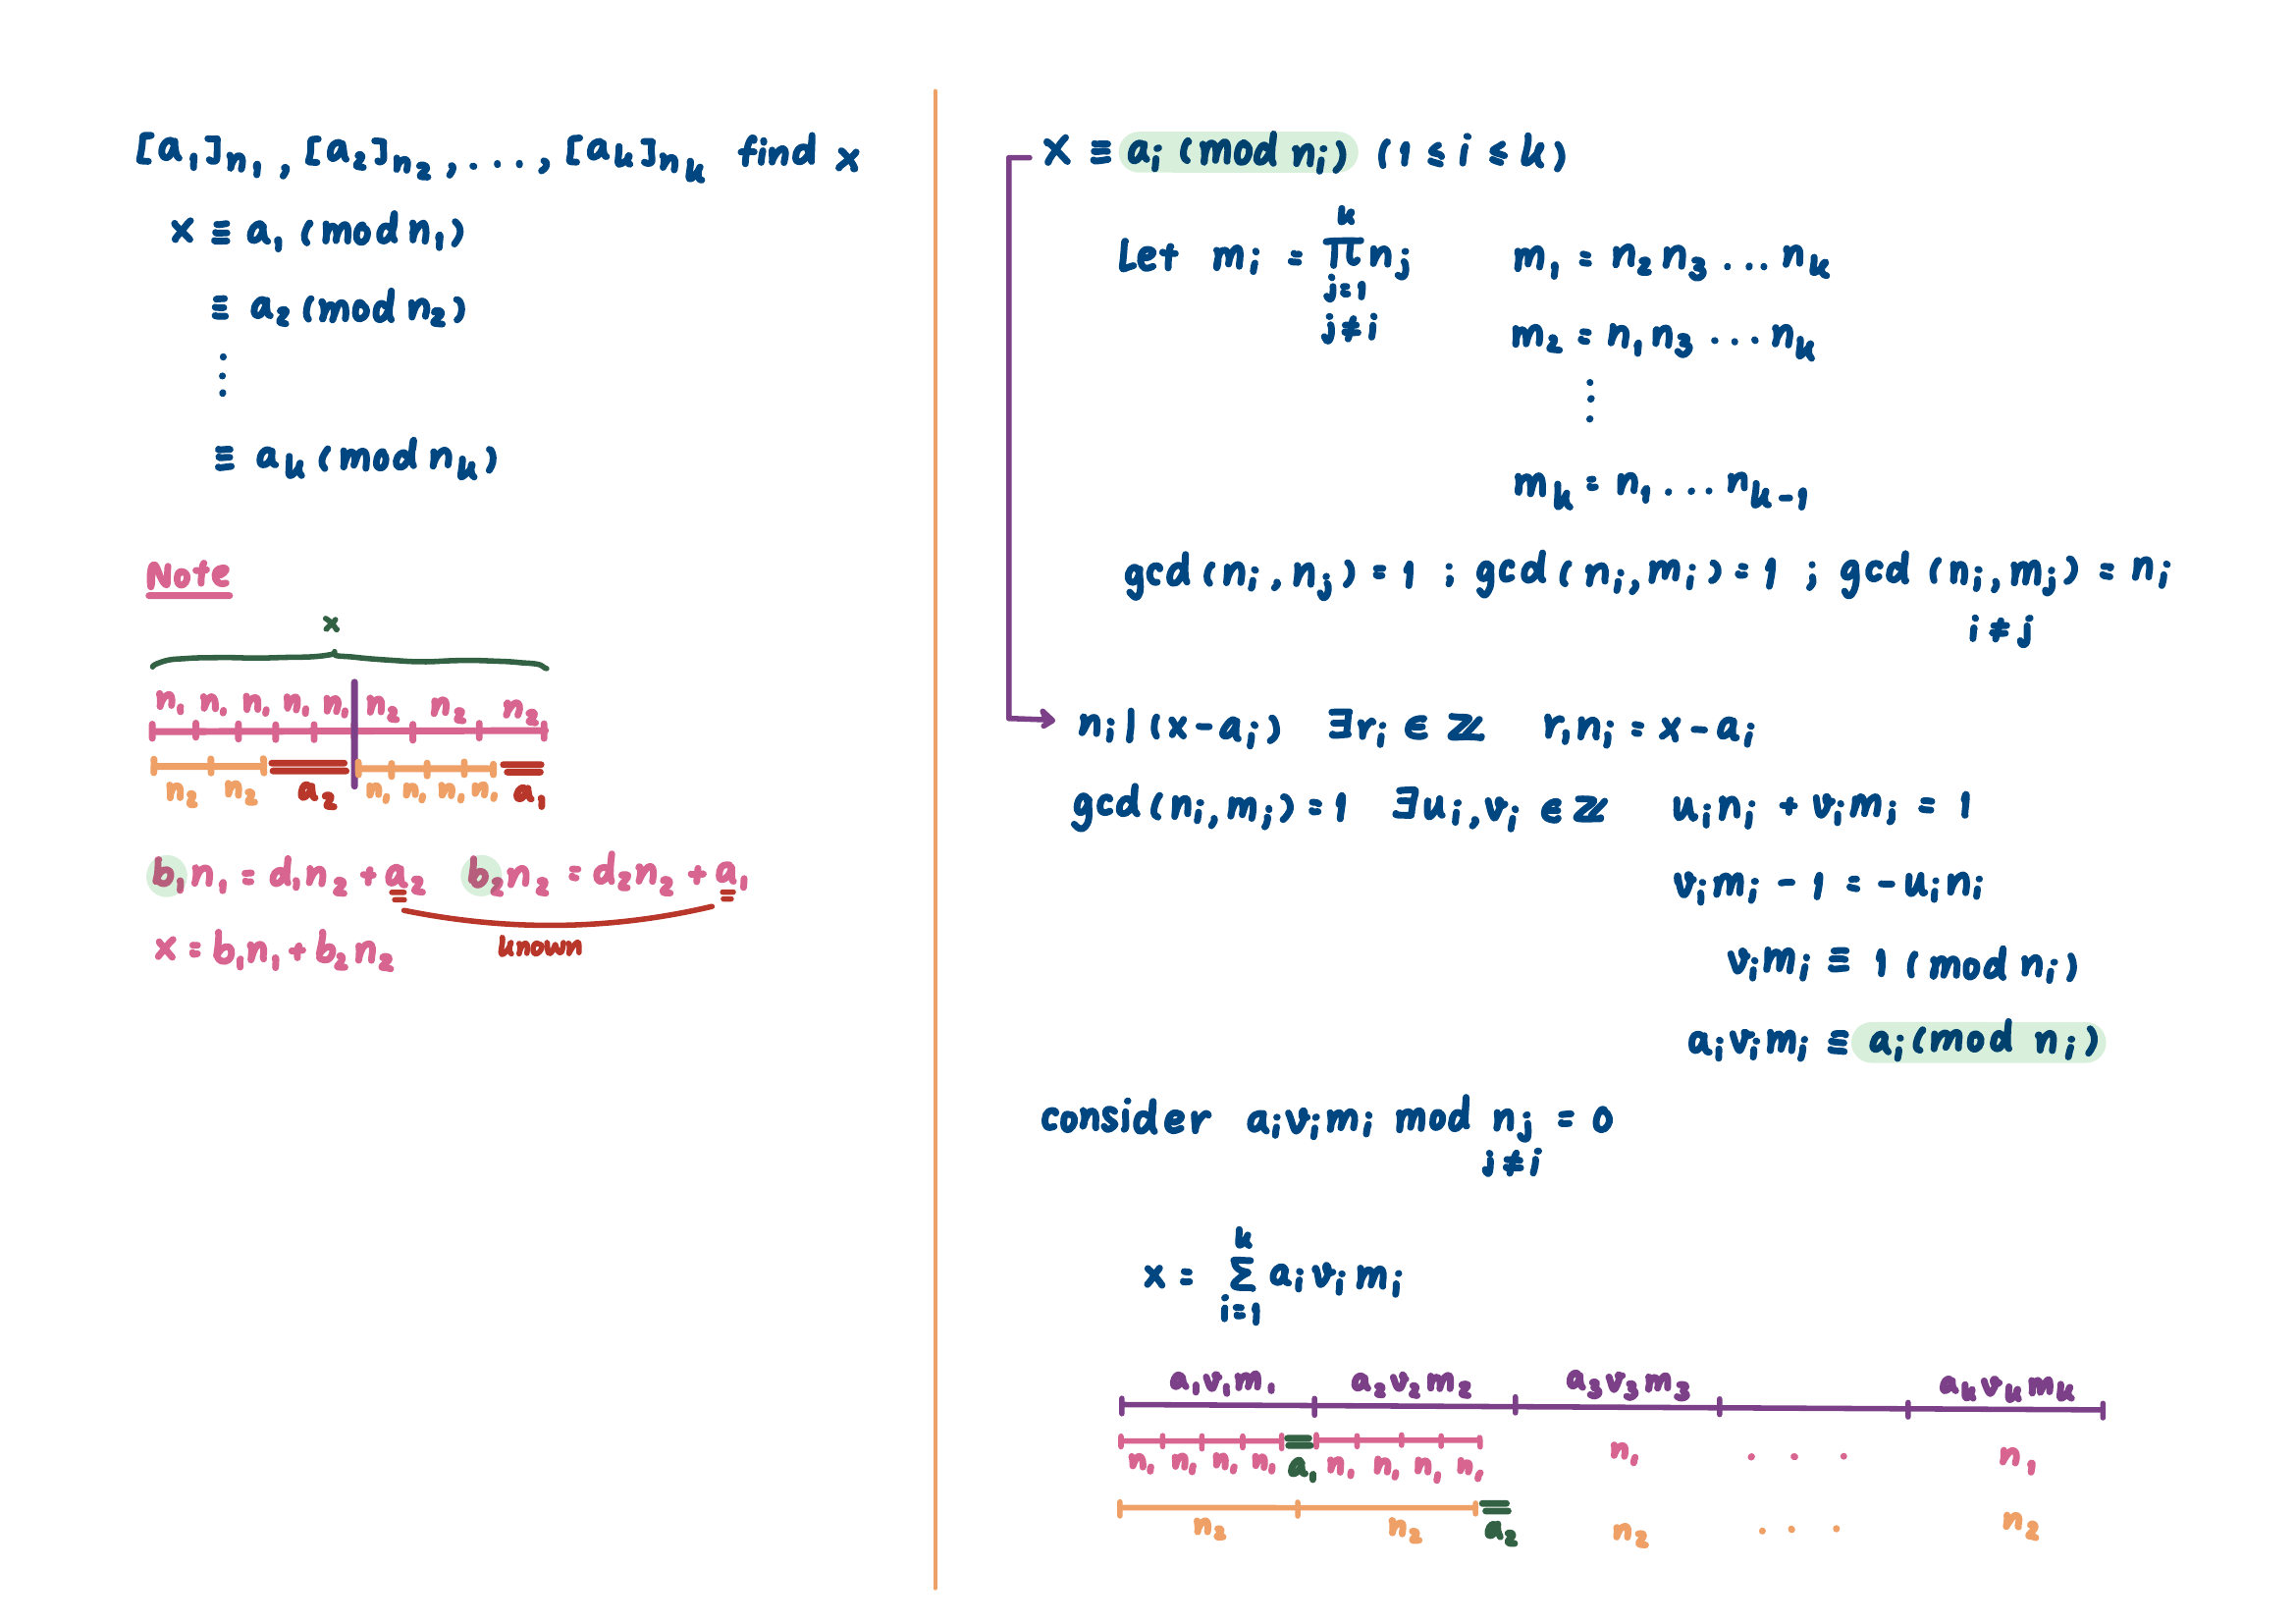 [a₁]n₁, [a₂]n₂, ..., [aₖ]nₖ find x
x ≡ a₁ (mod n₁)
≡ a₂ (mod n₂)
⋮
≡ aₖ (mod nₖ)
Note
x
n₁ n₁ n₁ n₁ n₁ n₂ n₂ n₂
n₂ n₂ a₂ n₁ n₁ n₁ n₁ a₁
b₁n₁ = d₁n₂ + a₂ b₂n₂ = d₂n₂ + a₁
known
x = b₁n₁ + b₂n₂
x ≡ aᵢ (mod nᵢ) (1 ≤ i ≤ k)
Let mᵢ = ∏ⱼ₌₁ᵏ nⱼ m₁ = n₂n₃ ... nₖ
j≠i m₂ = n₁n₃ ... nₖ
⋮
mₖ = n₁ ... nₖ₋₁
gcd(nᵢ, nⱼ) = 1 ; gcd(nᵢ, mᵢ) = 1 ; gcd(nᵢ, mⱼ) = nᵢ
i ≠ j
nᵢ | (x - aᵢ) ∃rᵢ ∈ ℤ rᵢnᵢ = x - aᵢ
gcd(nᵢ, mᵢ) = 1 ∃uᵢ, vᵢ ∈ ℤ uᵢnᵢ + vᵢmᵢ = 1
vᵢmᵢ - 1 = -uᵢnᵢ
vᵢmᵢ ≡ 1 (mod nᵢ)
aᵢvᵢmᵢ ≡ aᵢ (mod nᵢ)
consider aᵢvᵢmᵢ mod nⱼ = 0
j≠i
x = Σᵢ₌₁ᵏ aᵢvᵢmᵢ
a₁v₁m₁ a₂v₂m₂ a₃v₃m₃ aₖvₖmₖ
n₁ n₁ n₁ n₁ a₁ n₁ n₁ n₁ n₁ n₁ ... n₁
n₂ n₂ a₂ n₂ ... n₂